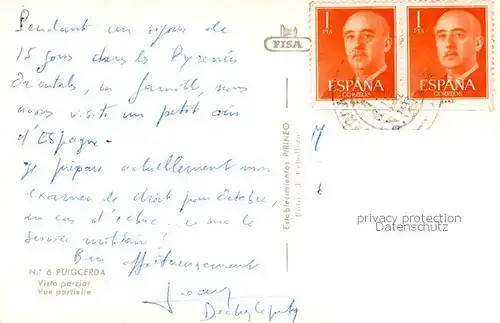 Pendant un séjour de
15 jours dans les Pyrenées
Orientales, en famille, nous
avons visité un petit coin
d'Espagne.
Je prépare actuellement mon
examen de droit pour Octobre,
en cas d'echec, ce sera le
service militaire!
Bien affectueusement
N.° 6 PUIGCERDA
Vista parcial
Vue partielle
FISA
Establecimientos PIRINEO
1
PTA
ESPAÑA
CORREOS
1
PTA
ESPAÑA
CORREOS
privacy protection
Datenschutz